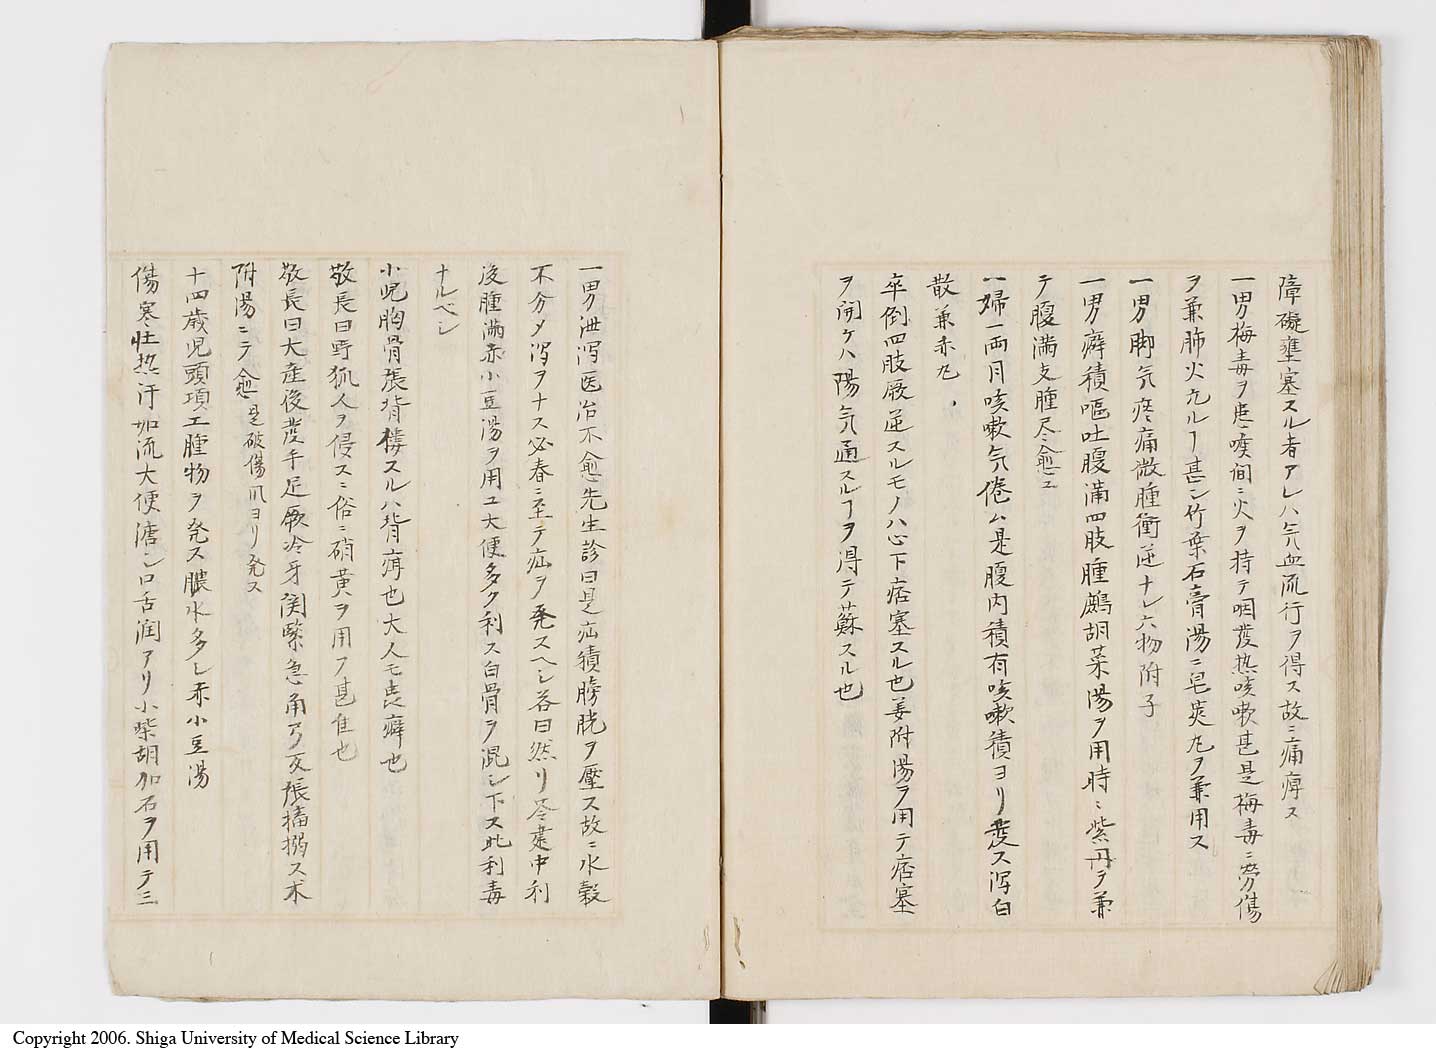 障礙壅塞スル者アレハ气血流行ヲ得ス故ニ痛痺ス
一男梅毒ヲ患喉间ニ火ヲ持テ咽発热咳嗽甚是梅毒ニ労傷
ヲ兼肺火亢ルヿ甚シ竹葉石膏湯ニ皂莢丸ヲ兼用ス
一男脚气疼痛微腫衝逆ナレ六物附子
一男癖積嘔吐腹満四肢腫鷓胡菜湯ヲ用時ニ紫丹ヲ兼
テ腹満支腫尽愈ユ
一婦一両月咳嗽气倦ム是腹内積有咳嗽積ヨリ発ス瀉白
散兼赤丸
卒倒四肢厥逆スルモノハ心下痞塞スル也姜附湯ヲ用テ痞塞
ヲ開ケハ陽气通スルヿヲ得テ蘇スル也
一男泄瀉医治不愈先生診曰是疝積膀胱ヲ壓ス故ニ水穀
不分メ瀉ヲナス必春ニ至テ疝ヲ発スヘシ答曰然リ苓建中利
後腫満赤小豆湯ヲ用ユ大便多ク利ス白骨ヲ混シ下ス此利毒
ナルベシ
小児胸骨張背僂スルハ背疳也大人モ長癖也
敬長曰野狐人ヲ侵スニ俗ニ硝黄ヲ用フ甚佳也
敬長曰大産後発手足厥冷牙関緊急角弓反張搐搦ス术
附湯ニテ愈是破傷爪ヨリ発ス
十四歳児頭項エ腫物ヲ発ス膿水多シ赤小豆湯
傷寒壮热汗如流大便溏シ口舌潤アリ小柴胡加石ヲ用テ三
Copyright 2006. Shiga University of Medical Science Library